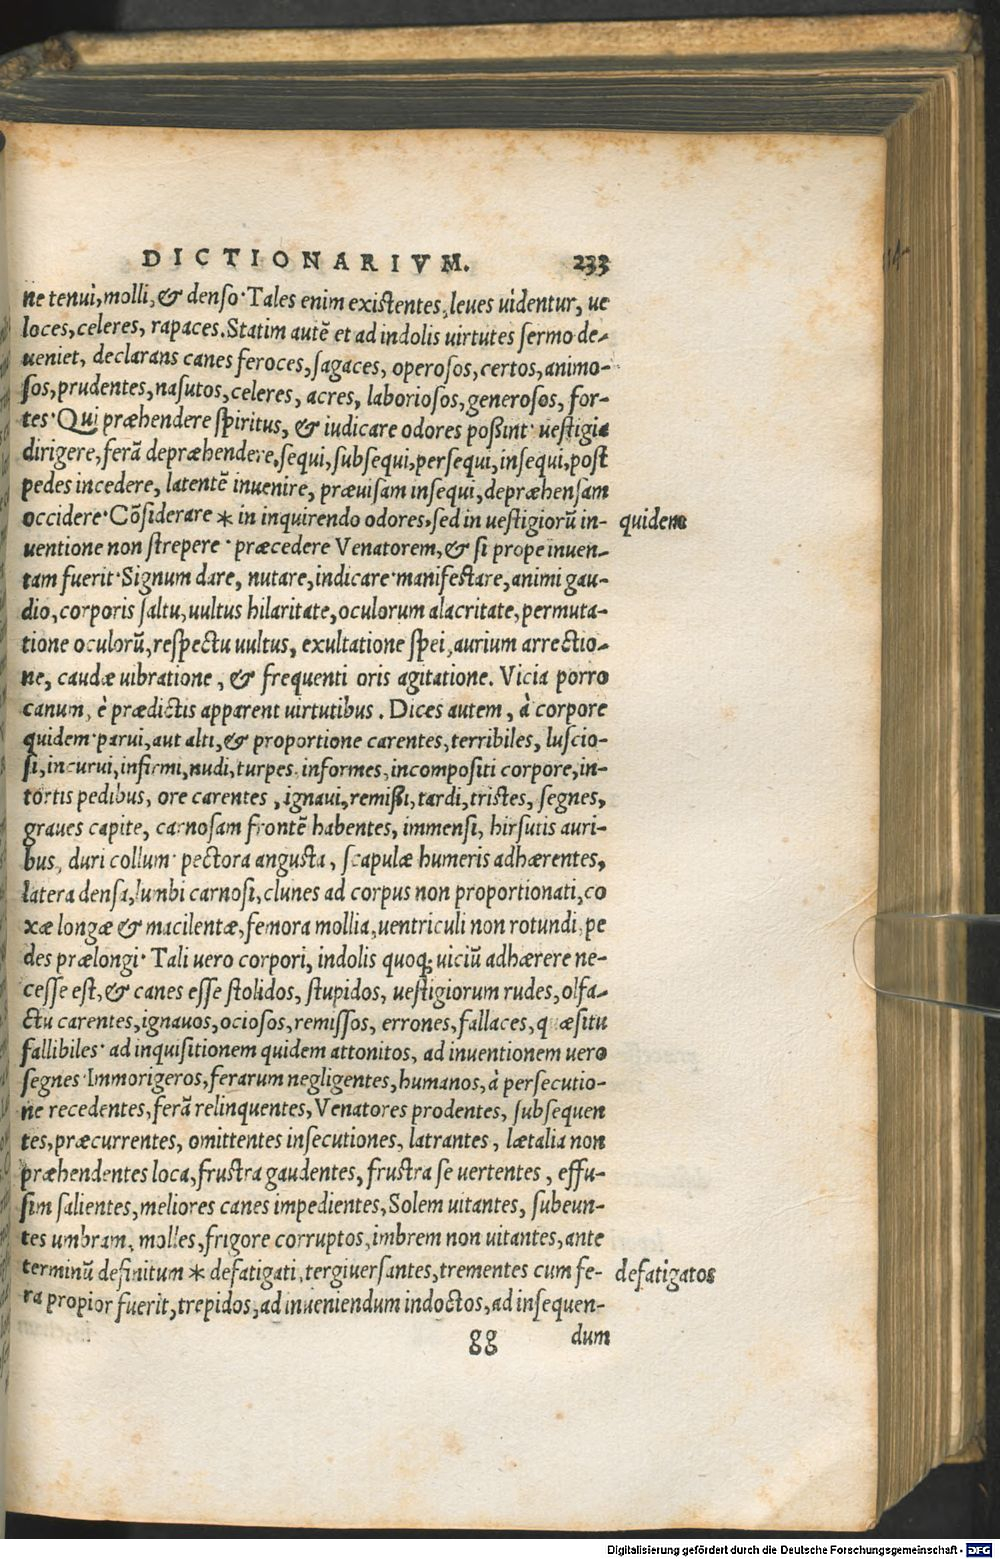 DICTIONARIVM. 233
ne tenui, molli, & denso· Tales enim existentes, leues uidentur, ue
loces, celeres, rapaces. Statim autē et ad indolis uirtutes sermo de-
ueniet, declarans canes feroces, sagaces, operosos, certos, animo-
sos, prudentes, nasutos, celeres, acres, laboriosos, generosos, for-
tes· Qui præhendere spiritus, & iudicare odores possint· uestigia
dirigere, ferā depræhendere, sequi, subsequi, persequi, insequi, post
pedes incedere, latentē inuenire, præuisam insequi, depræhensam
occidere· Cōsiderare * in inquirendo odores, sed in uestigiorū in- quidem
uentione non strepere· præcedere Venatorem, & si prope inuen-
tam fuerit· Signum dare, nutare, indicare· manifestare, animi gau-
dio, corporis saltu, uultus hilaritate, oculorum alacritate, permuta-
tione oculorū, respectu uultus, exultatione spei, aurium arrectio-
ne, caudæ uibratione, & frequenti oris agitatione. Vicia porro
canum, è prædictis apparent uirtutibus. Dices autem, à corpore
quidem· parui, aut alti, & proportione carentes, terribiles, luscio-
si, incurui, infirmi, nudi, turpes, informes, incompositi corpore, in-
tortis pedibus, ore carentes, ignaui, remissi, tardi, tristes, segnes,
graues capite, carnosam frontē habentes, immensi, hirsutis auri-
bus, duri collum· pectora angusta, scapulæ humeris adhærentes,
latera densa, lumbi carnosi, clunes ad corpus non proportionati, co
xæ longæ & macilentæ, femora mollia, uentriculi non rotundi, pe
des prælongi· Tali uero corpori, indolis quoq; uiciū adhærere ne-
cesse est, & canes esse stolidos, stupidos, uestigiorum rudes, olfa-
ctu carentes, ignauos, ociosos, remissos, errones, fallaces, quæsitu
fallibiles· ad inquisitionem quidem attonitos, ad inuentionem uero
segnes· Immorigeros, ferarum negligentes, humanos, à persecutio-
ne recedentes, ferā relinquentes, Venatores prodentes, subsequen
tes, præcurrentes, omittentes insecutiones, latrantes, lætalia non
præhendentes loca, frustra gaudentes, frustra se uertentes, effu-
sim salientes, meliores canes impedientes, Solem uitantes, subeun-
tes umbram, molles, frigore corruptos, imbrem non uitantes, ante
terminū definitum * defatigati, tergiuersantes, trementes cum fe- defatigatos
ra propior fuerit, trepidos, ad inueniendum indoctos, ad insequen-
gg dum
Digitalisierung gefördert durch die Deutsche Forschungsgemeinschaft - DFG